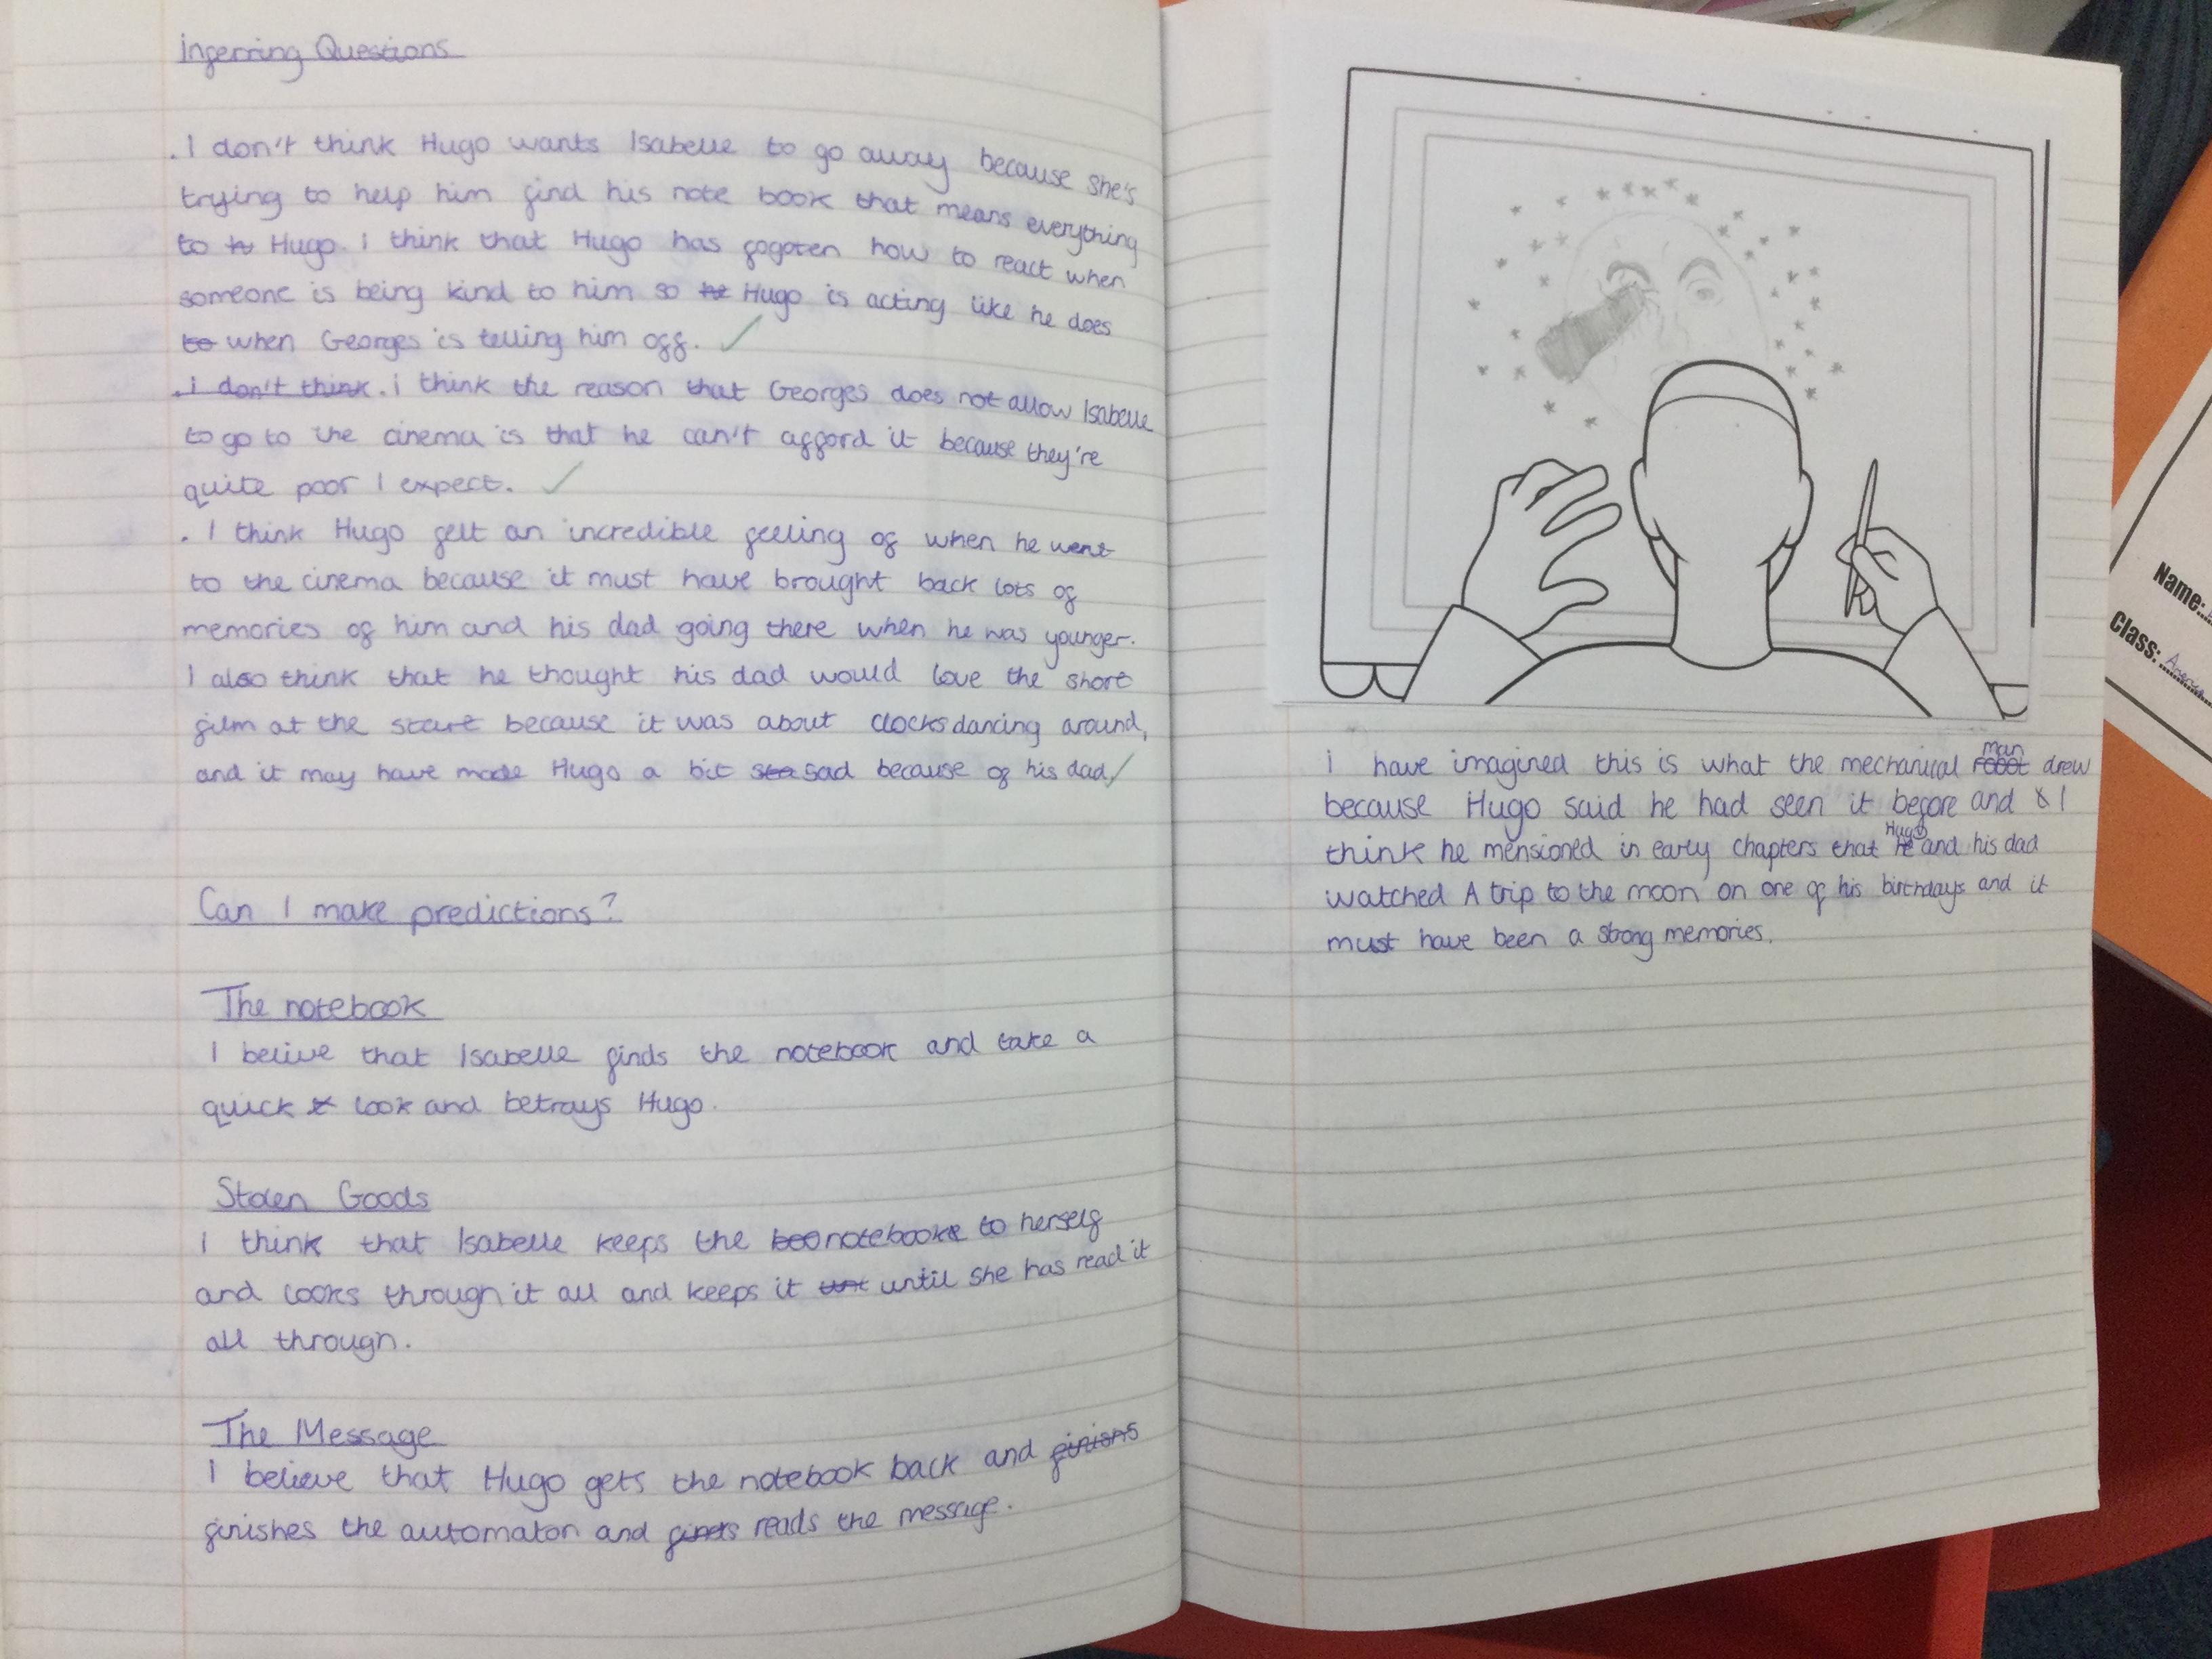 Inferring Questions
. I don't think Hugo wants Isabelle to go away because she's
trying to help him find his note book that means everything
to h Hugo. I think that Hugo has fogoten how to react when
someone is being kind to him so he Hugo is acting like he does
to when Georges is telling him off.
. i don't think. i think the reason that Georges does not allow Isabelle
to go to the cinema is that he can't afford it because they're
quite poor I expect.
. I think Hugo felt an incredible feeling of when he went
to the cinema because it must have brought back lots of
memories of him and his dad going there when he was younger.
I also think that he thought his dad would love the short
film at the start because it was about clocks dancing around,
and it may have made Hugo a bit sea sad because of his dad
Can I make predictions?
The notebook
I belive that Isabelle finds the notebook and take a
quick look and betrays Hugo.
Stolen Goods
I think that Isabelle keeps the boo notebook to herself
and looks through it all and keeps it unt until she has read it
all through.
The Message
I believe that Hugo gets the notebook back and finishs
finishes the automaton and reads the message.
I have imagined this is what the mechanical robot man drew
because Hugo said he had seen it before and I
think he mensioned in early chapters that he Hugo and his dad
watched A trip to the moon on one of his birthdays and it
must have been a strong memories.
Name:
Class: